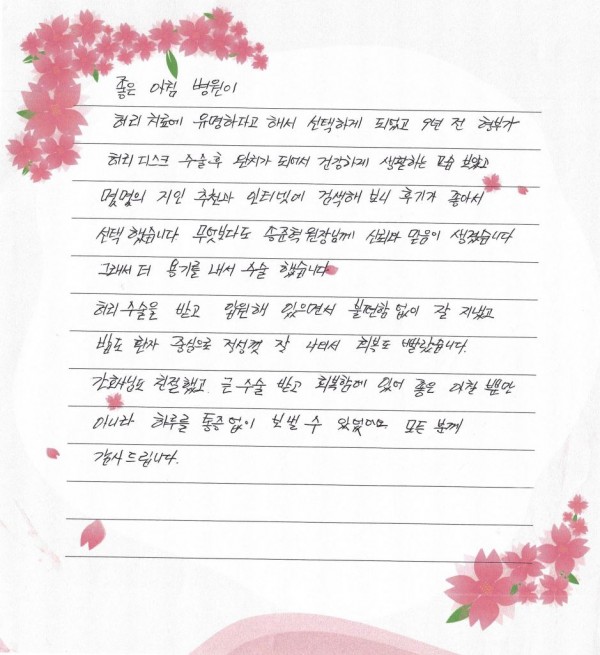 좋은 아침 병원이
허리 치료에 유명하다고 해서 선택하게 되었고 9년 전 형부가
허리 디스크 수술 후 완치가 되어서 건강하게 생활하는 모습 보았고
몇몇의 지인 추천과 인터넷에 검색해 보니 후기가 좋아서
선택 했습니다 무엇보다도 송준혁 원장님께 신뢰와 믿음이 생겼습니다
그래서 더 용기를 내서 수술 했습니다
허리 수술을 받고 입원해 있으면서 불편함 없이 잘 지냈고
밥도 환자 중심으로 정성껏 잘 나와서 회복도 빨랐습니다.
간호사님도 친절했고 큰 수술 받고 회복함에 있어 좋은 아침 뿐만
아니라 하루를 통증 없이 보낼 수 있었어요 모든 분께
감사드립니다.